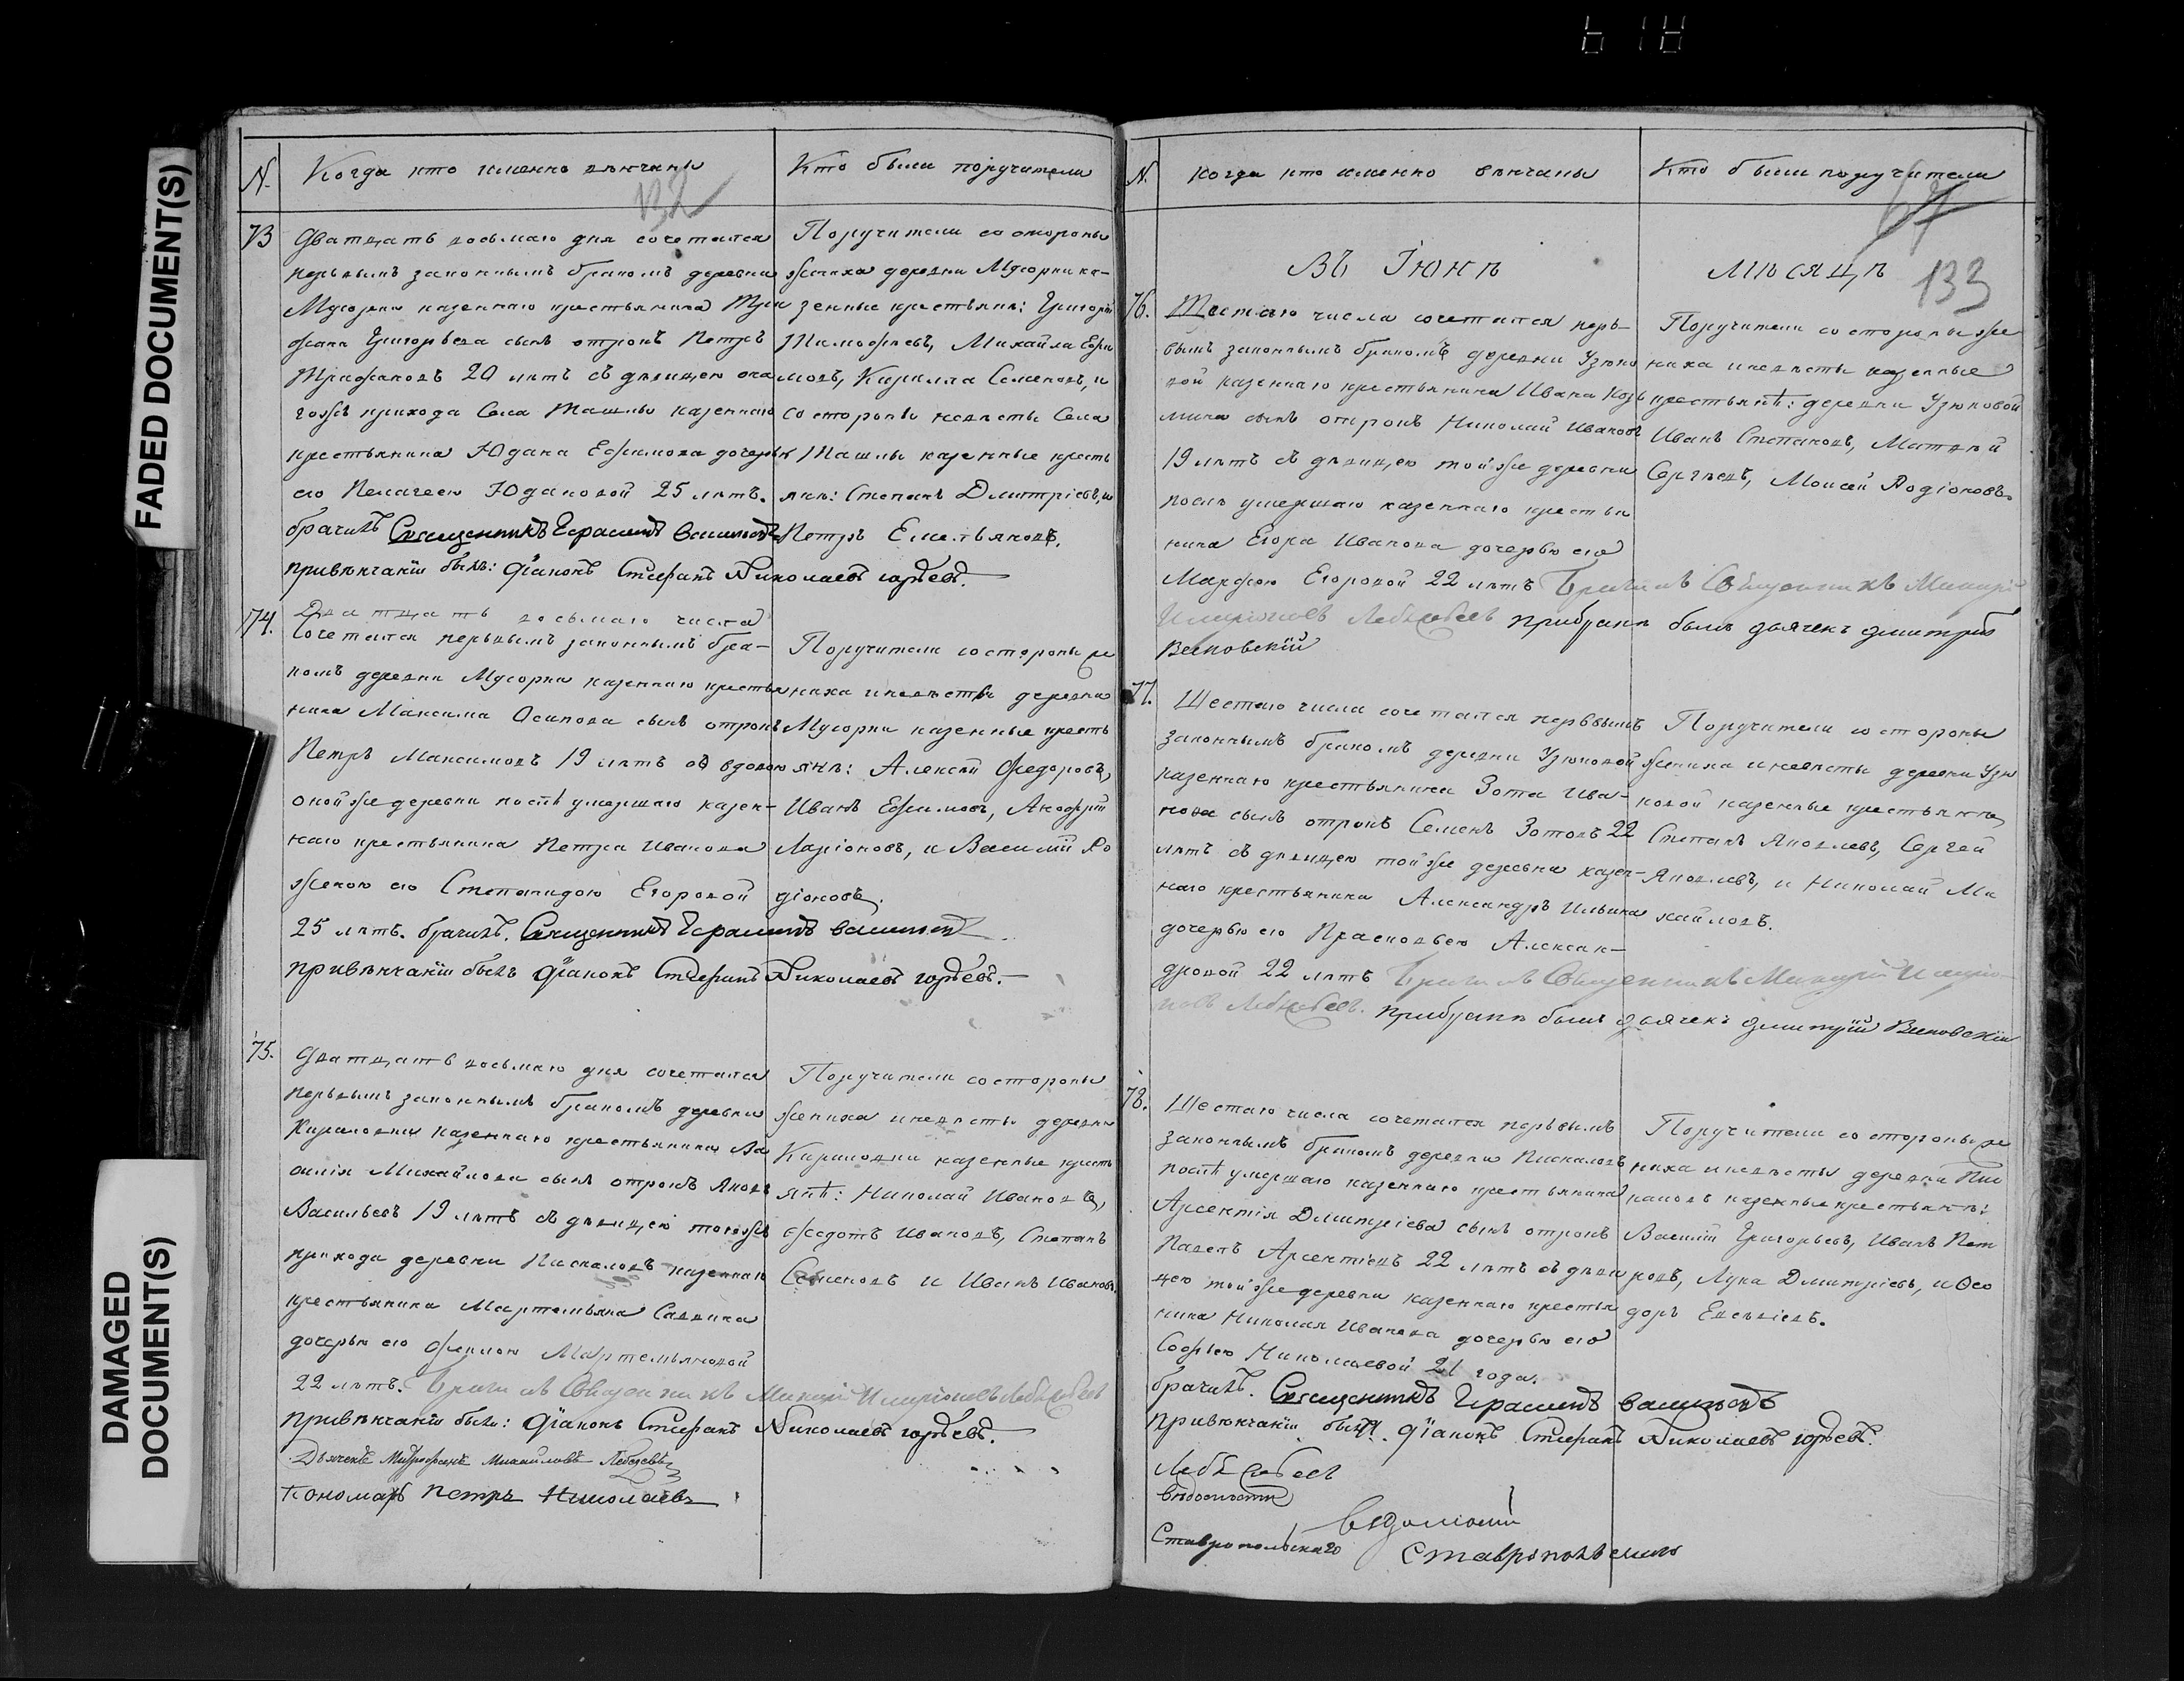 FADED DOCUMENT(S)
DAMAGED DOCUMENT(S)
N. Когда кто именно вѣнчаны
Кто были поручители
132
73 Дватцать восьмаго дня сочетался
первымъ законнымъ бракомъ деревни
Мусорки казеннаго крестьянина Три
фана Григорьева сынъ отрокъ Петръ
Трифановъ 20 лѣтъ съ дѣвицею она
гожъ прихода Села Ташлы казеннаго
крестьянина Юдана Ефимова дочерью
его Пелагеею Юдановой 25 лѣтъ.
брачилъ Священникъ Герасимъ Васильевъ
привѣнчаніи былъ: Діаконъ Стефанъ Николаевъ
Поручители со стороны
жениха деревни Мусорки ка-
зенные крестьяня: Григорій
Тимофѣевъ, Михайла Ефи
мовъ, Кирилла Семеновъ, и
со стороны невѣсты Села
Ташлы казенные кресть
яня: Степанъ Дмитріевъ, и
Петръ Емельяновъ.
74. Дватцать восьмаго числа
сочетался первымъ законнымъ бра-
комъ деревни Мусорки казеннаго крестья
нина Максима Осипова сынъ отрокъ
Петръ Максимовъ 19 лѣтъ съ вдовою
оной же деревни послѣ умершаго казен-
наго крестьянина Петра Иванова
женою его Степанидою Егоровой
25 лѣтъ. брачилъ. Священникъ Герасимъ Васильевъ
привѣнчаніи былъ Діаконъ Стефанъ Николаевъ
Поручители со стороны же
ниха и невѣсты деревни
Мусорки казенные кресть
янѣ: Алексѣй Федоровъ,
Иванъ Ефимовъ, Анофрій
Ларіоновъ, и Василій Ро
діоновъ.
75. Дватцать восьмаго дня сочетался
первымъ законнымъ бракомъ деревни
Кириловки казеннаго крестьянина Ва
силія Михайлова сынъ отрокъ Яковъ
Васильевъ 19 лѣтъ съ дѣвицею тогожъ
прихода деревни Пискаловъ казеннаго
крестьянина Мартемьяна Саввина
дочерью его Феклою Мартемьяновой
22 лѣтъ. Брачилъ Священникъ Макарій Иларіоновъ Лебедевъ
привѣнчаніи былъ: Діаконъ Стефанъ Николаевъ
Дьячекъ Митрофанъ Михайловъ Лебедевъ
Пономарь Петръ Николаевъ
Поручители со стороны
жениха и невѣсты деревни
Кириловки казенные кресть
янѣ: Николай Ивановъ,
Федотъ Ивановъ, Степанъ
Семеновъ и Иванъ Ивановъ
N. Когда кто именно вѣнчаны
Кто были поручители
67
133
Въ Іюнѣ мѣсяцѣ
76. Шестаго числа сочетался пер-
вымъ законнымъ бракомъ деревни Узюко
вой казеннаго крестьянина Ивана Козь
мина сынъ отрокъ Николай Ивановъ
19 лѣтъ съ дѣвицею той же деревни
послѣ умершаго казеннаго крестья
нина Егора Иванова дочерью его
Марфою Егоровой 22 лѣтъ Брачилъ Священникъ Макарій
Иларіоновъ Лебедевъ прибракѣ былъ дьячекъ Дмитрій
Поручители со стороны же
ниха и невѣсты казенные
крестьянѣ: деревни Узюковой
Иванъ Степановъ, Матвѣй
Сергѣевъ, Моисей Родіоновъ.
77. Шестаго числа сочетался первымъ
законнымъ бракомъ деревни Узюковой
казеннаго крестьянина Зота Ива-
нова сынъ отрокъ Семенъ Зотовъ 22
лѣтъ съ дѣвицею той же деревни казен-
наго крестьянина Александръ Ильина
дочерью его Прасковьею Алексан-
дровой 22 лѣтъ Брачилъ Священникъ Макарій Иларіо-
новъ Лебедевъ. прибракѣ былъ дьячекъ Дмитрій
Поручители со стороны
жениха и невѣсты деревни Узю
ковой казенные крестьяня,
Степанъ Яковлевъ, Сергей
Яковлевъ, и Николай Ми
хайловъ.
78. Шестаго числа сочетался первымъ
законнымъ бракомъ деревни Пискаловъ
послѣ умершаго казеннаго крестьянина
Арсентія Дмитріева сынъ отрокъ
Павелъ Арсентіевъ 22 лѣтъ съ дѣви
цею той же деревни казеннаго крестья
нина Николая Иванова дочерью его
Софьею Николаевой 21 года.
брачилъ. Священникъ Герасимъ Васильевъ
привѣнчаніи былъ. Діаконъ Стефанъ Николаевъ
Поручители со стороны же
ниха и невѣсты деревни Пис
каловъ казенные крестьянѣ:
Василій Григорьевъ, Иванъ Пет
ровъ, Лука Дмитріевъ, и Фео
доръ Евсѣвіевъ.
Лебедевъ
Вѣдомости
Ставропольскаго